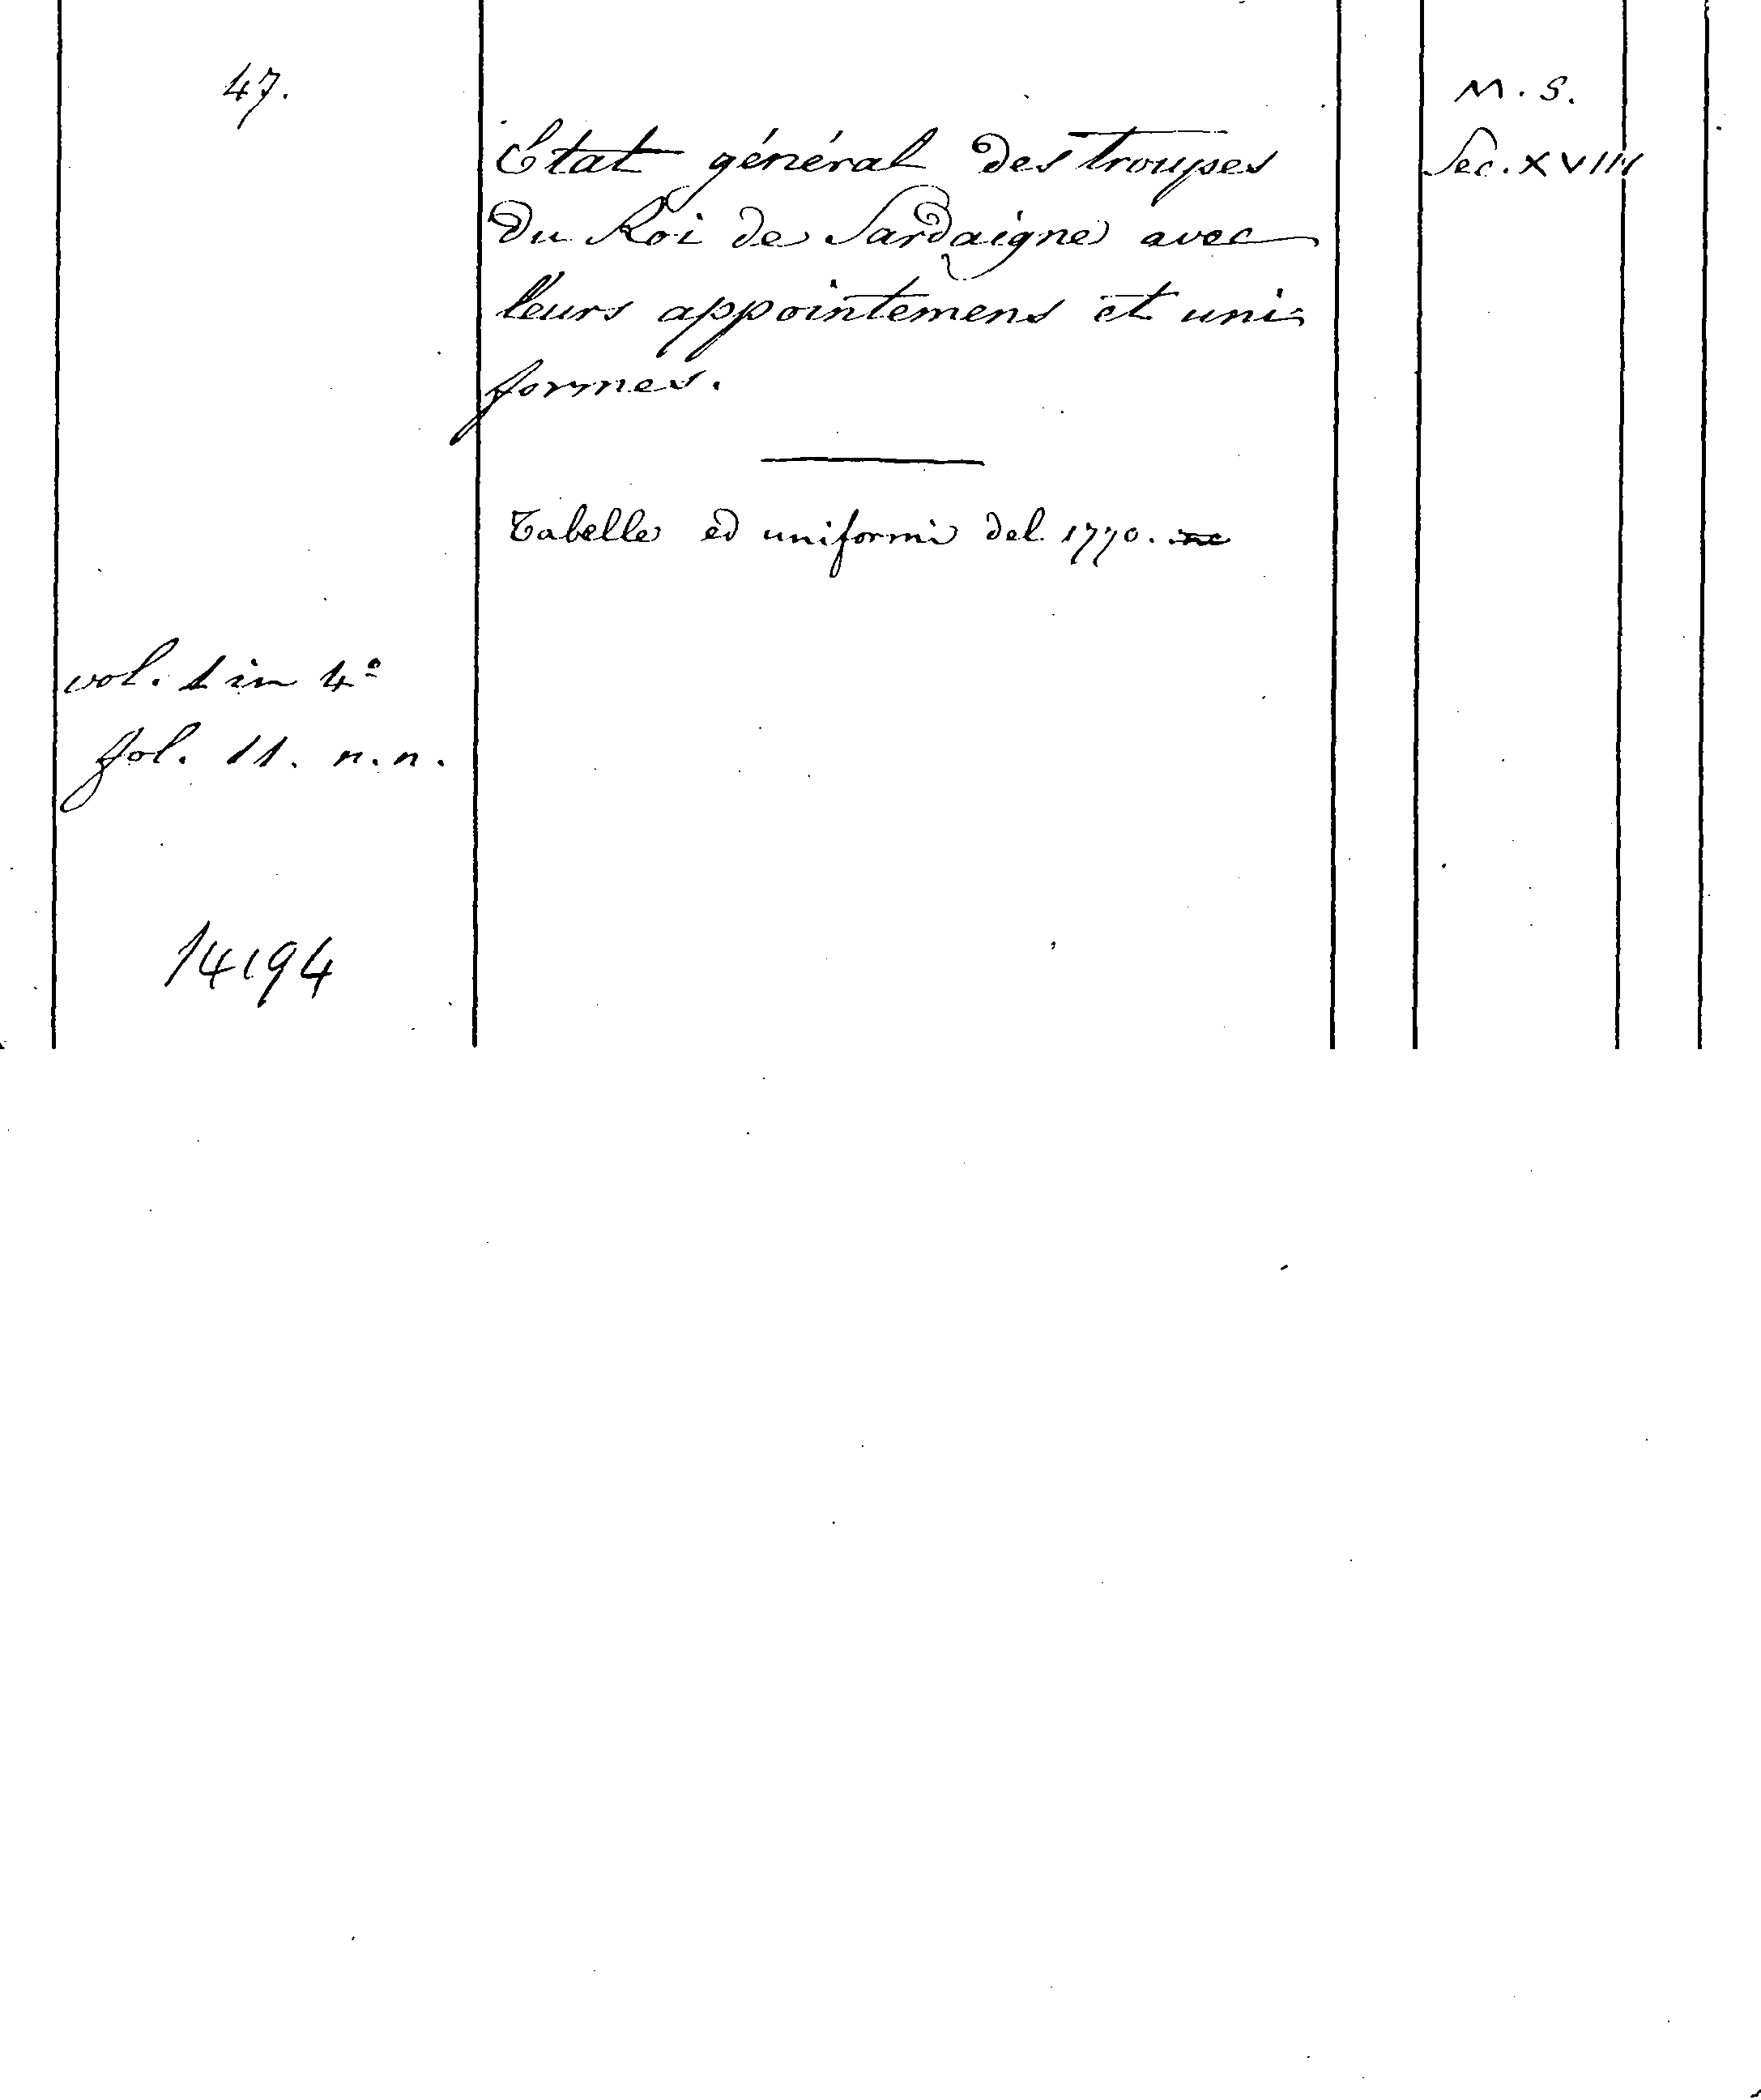 47.
Etat général des Troupes
du Roi de Sardaigne avec
leurs appointemens et uni-
formes.
Tabelle ed uniformi del 1770.
vol. 1 in 4º
fol. 11. n.n.
14194
M.S.
Sec. XVIII